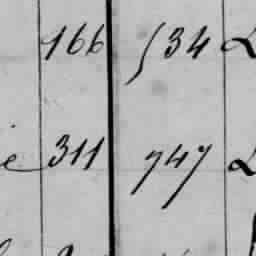 166 534 L
e 311 747 L